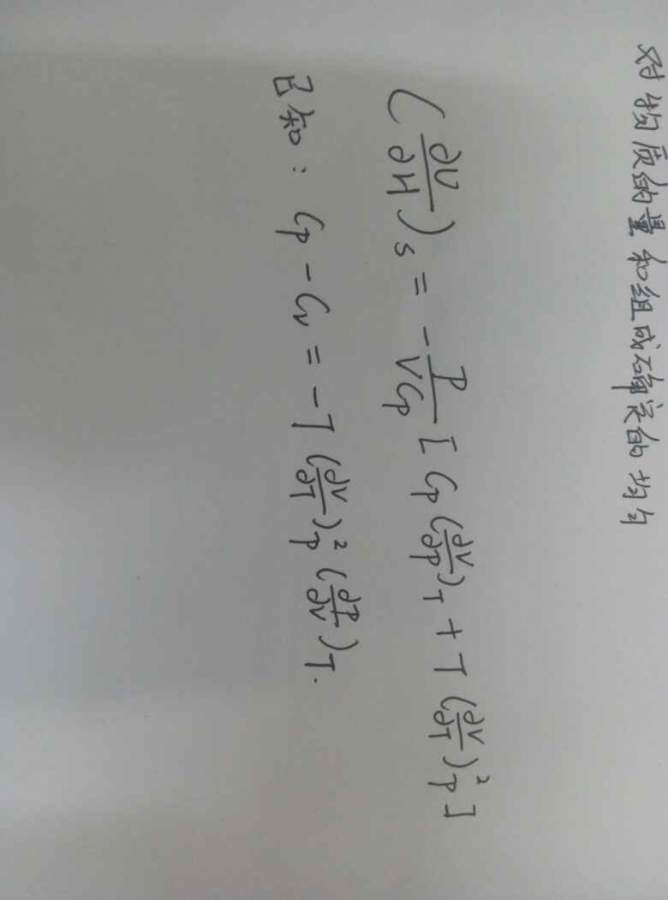 对物质的量和组成确定的均匀
(∂U/∂H)_S = -P/(VC_P) [C_P(∂V/∂P)_T + T(∂V/∂T)_P^2]
已知: C_P - C_V = -T(∂V/∂T)_P^2 (∂P/∂V)_T.